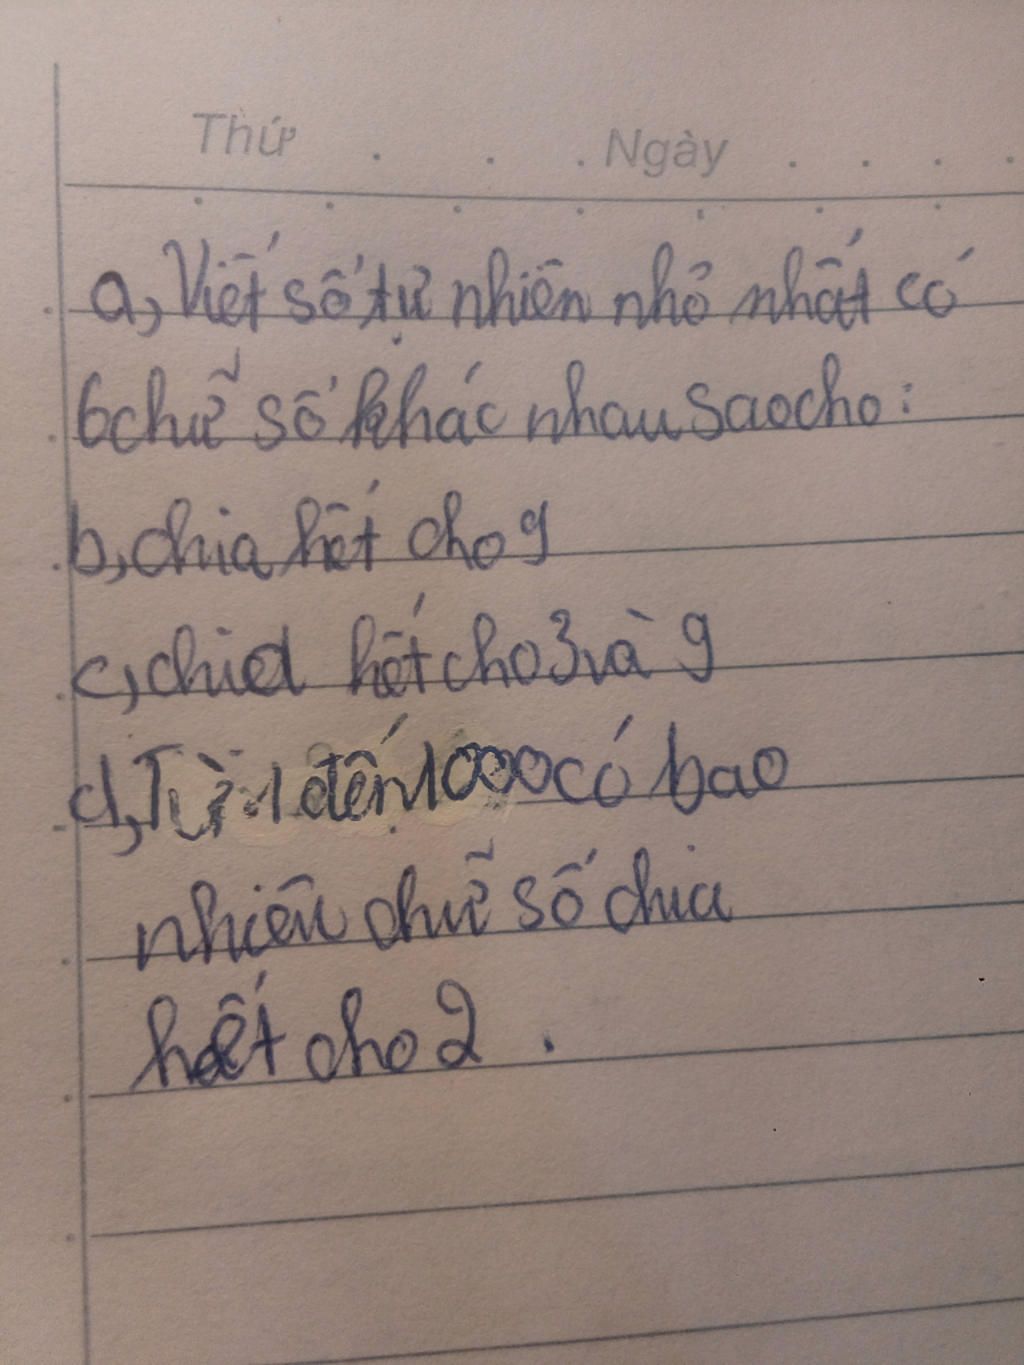 Thứ . . . Ngày . . . .
a, Viết số tự nhiên nhỏ nhất có
6 chữ số khác nhau sao cho:
b, chia hết cho 9
c, chia hết cho 3 và 9
d, Từ 1 đến 1000 có bao
nhiêu chữ số chia
hết cho 2.